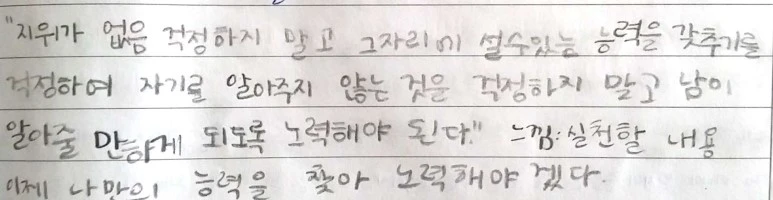 "지위가 없음 걱정하지 말고 그자리에 설수있는 능력을 갖추기를
걱정하여 자기를 알아주지 않는 것을 걱정하지 말고 남이
알아줄 만하게 되도록 노력해야 된다." 느낌: 실천할 내용
이제 나만의 능력을 찾아 노력해야 겠다.